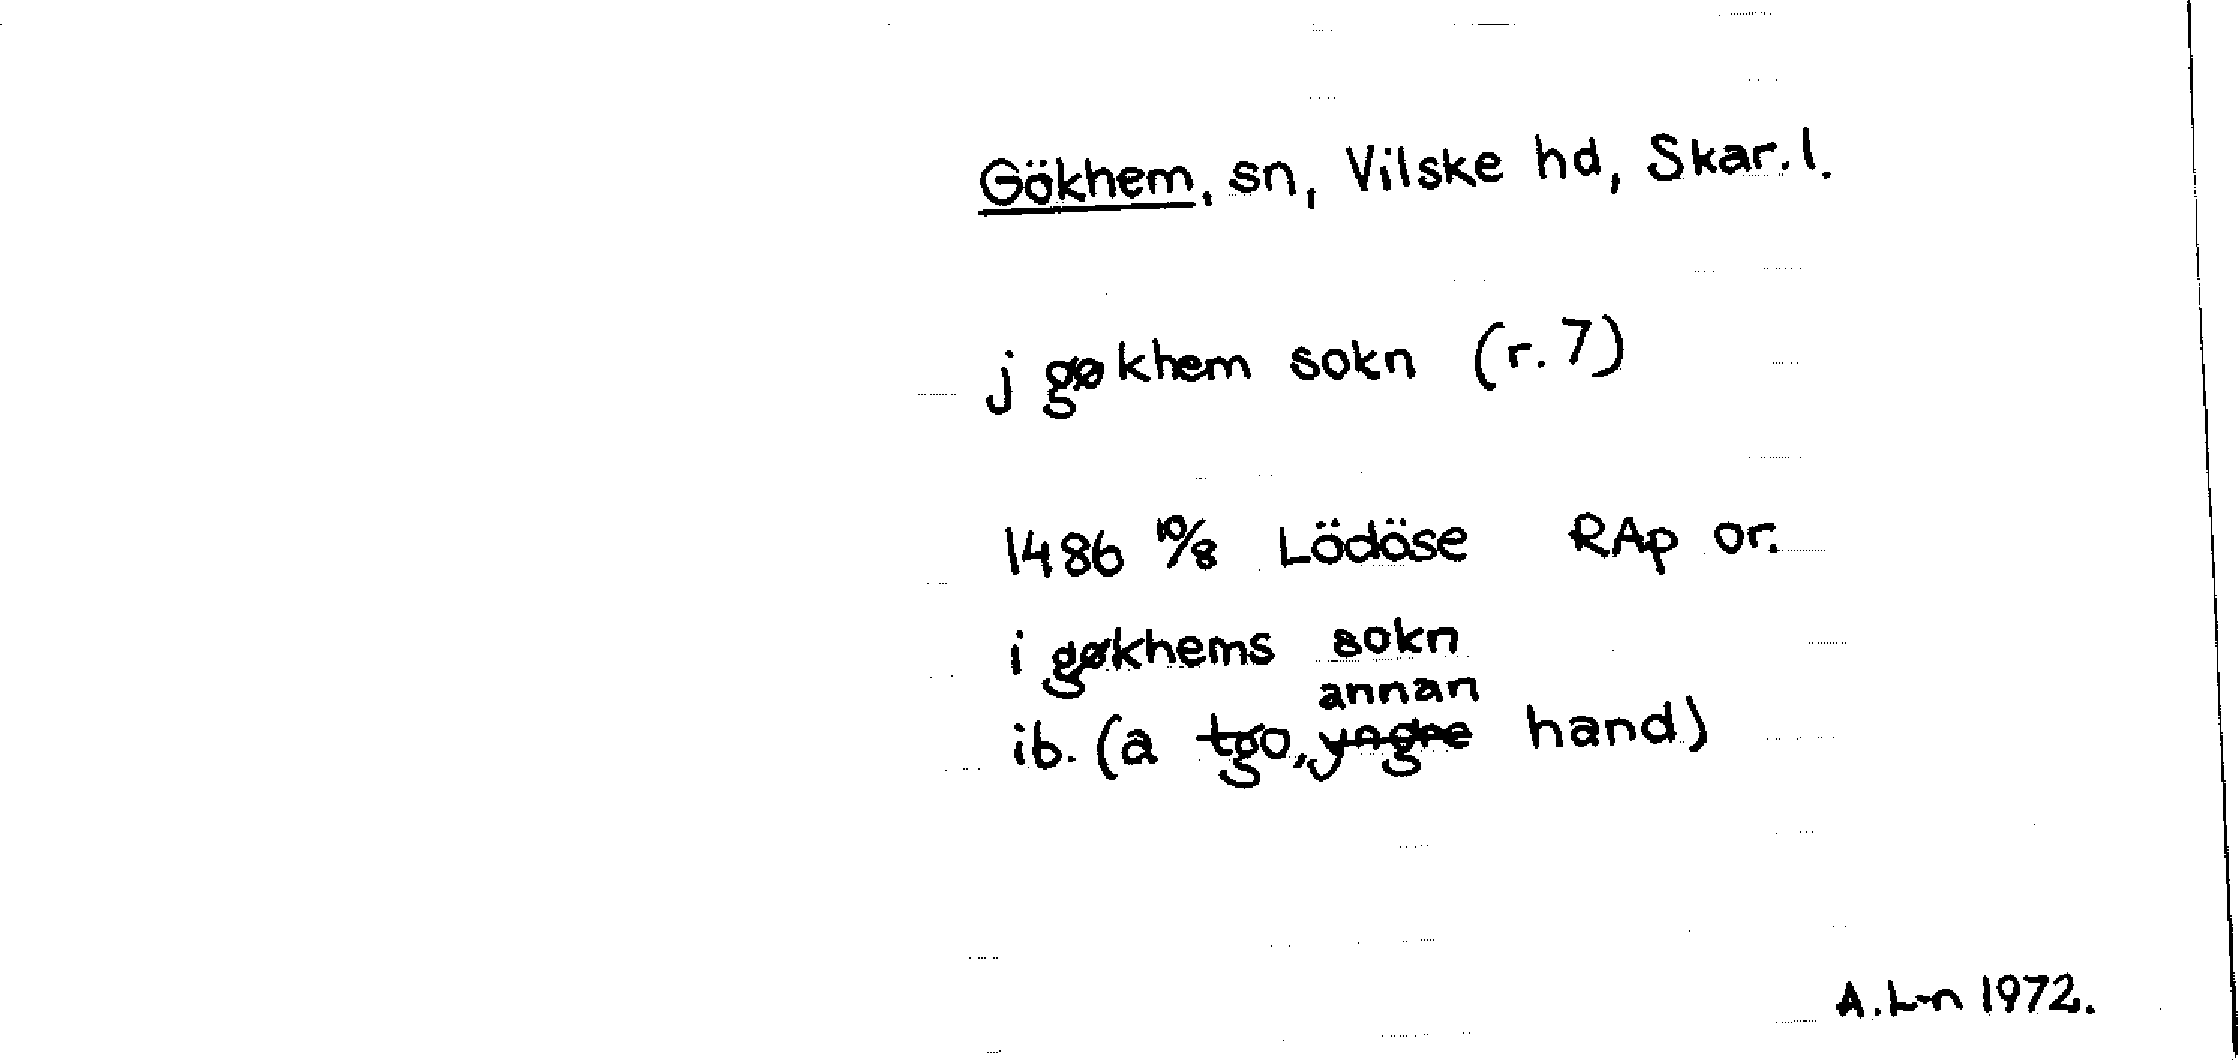 Gökhem, sn, Vilske hd, Skar. l.
j gøkhem sokn (r. 7)
1486 10/8 Lödöse RAp or.
i gøkhems sokn
annan
ib. (a tgo, yngre hand)
A. L-n 1972.